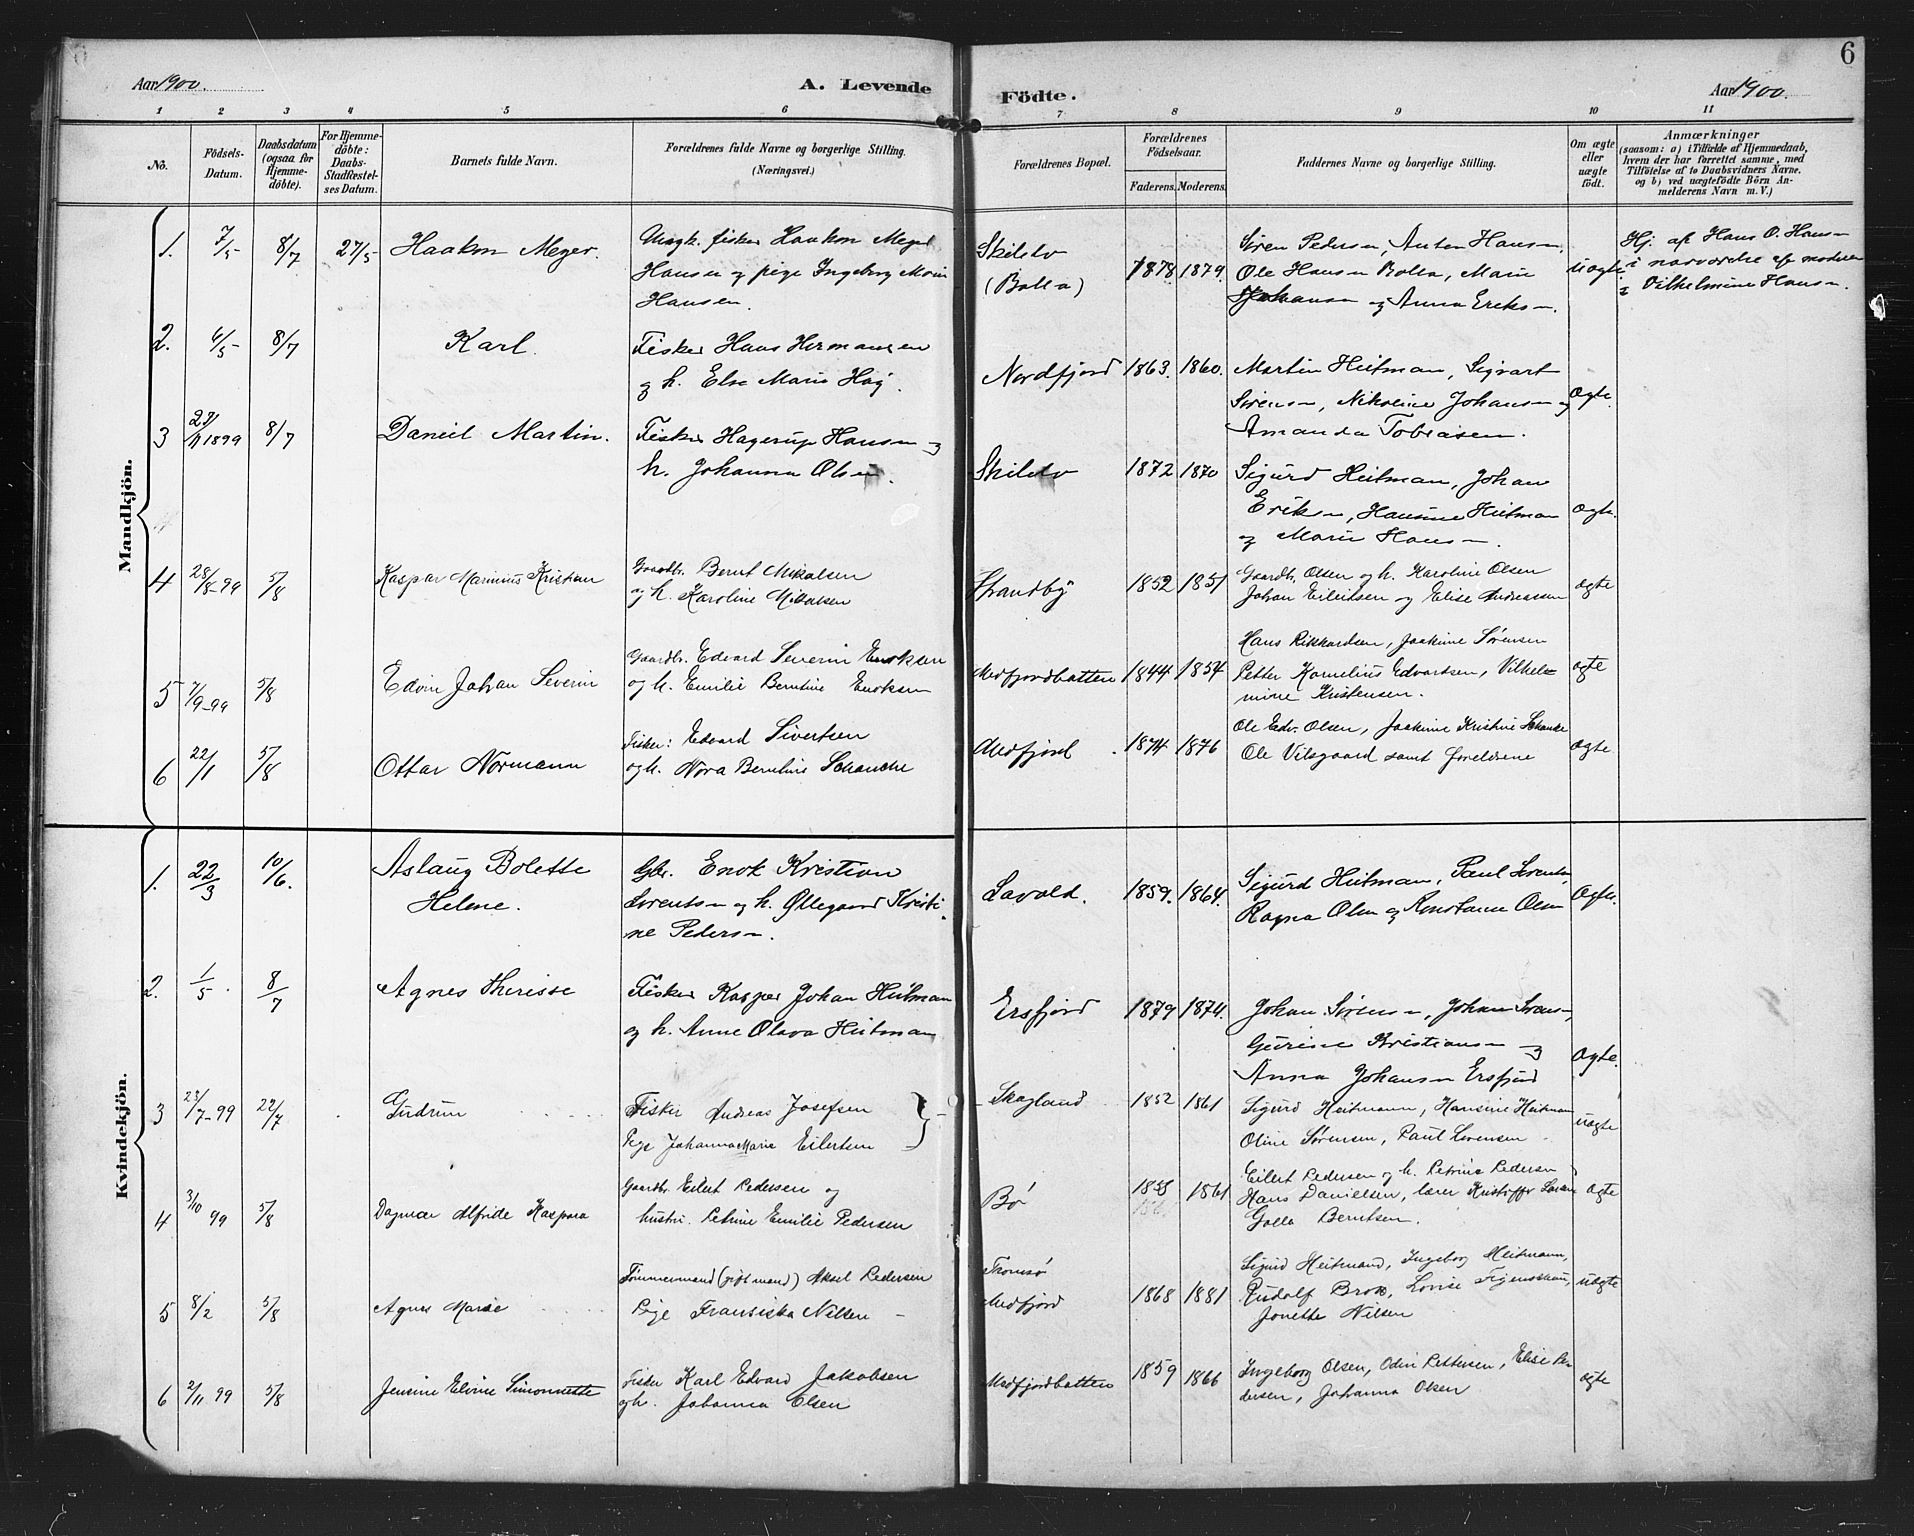 6
Aar 1900.
A. Levende
Födte.
Aar 1900.
1 2 3 4 5 6 7 8 9 10 11
No.
Födsels-
Datum.
Daabsdatum
(ogsaa for
Hjemme-
döbte).
For Hjemme-
döbte:
Daabs-
Stadfæstel-
ses Datum.
Barnets fulde Navn.
Forældrenes fulde Navne og borgerlige Stilling.
(Næringsvei.)
Forældrenes Bopæl.
Forældrenes
Födselsaar.
Faderens. Moderens.
Faddernes Navne og borgerlige Stilling.
Om ægte
eller
uægte
födt.
Anmærkninger
(saasom: a) i Tilfælde af Hjemmedaab,
hvem der har forrettet samme, med
Tilföielse af to Daabsvidners Navne.
og b) ved uægtefödte Börn An-
melderens Navn m. V.)
Mandkjön.
1. 7/5 8/7 27/5 Haakon Meyer.
Ungk. fisker Haakon Meyer
Hansen og pige Ingeborg Marie
Hansen.
Skilelv
(Balla)
1878 1879.
Søren Pedersen, Anton Hansen,
Ole Hansen Balla, Marie
Johansen og Anna Eriksen.
uægte
Hj. af Hans O. Hansen
i nærværelse af moderen
& Vilhelmine Hansen.
2. 6/5 8/7 Karl.
Fisker Hans Hermansen
og h. Else Marie Høg.
Nordfjord 1863. 1860.
Martin Heitman, Sigvart
Sørensen, Nikoline Johansen og
Amanda Tobiasen.
Ægte.
3 8/7 Daneil Martin.
Fisker Hagerup Hansen og
h. Johanna Olsen.
Skilelv 1872 1870
Sigurd Heitman, Johan
Eriksen, Hansine Heitman
og Marie Hansen.
Ægte.
4 28/8-99 5/8 Kaspar Marinius Kristian
Gaardbr. Bernt Mikalsen
og h. Karoline Mikalsen
Strandby 1852 1851
Gaardbr. Olsen og h. Karoline Olsen
Johan Eilertsen og Elise Andreassen
ægte
5 7/9-99 5/8 Edvin Johan Severin
Gaardbr. Edvard Severin Enoksen
og h. Emilie Berntine Enoksen
Medfjordbotten 1844 1854
Hans Rikkardsen, Joakime Sørensen
Petter Kornelius Edvartsen, Vilhel-
mine Kristensen.
ægte
6 22/1 5/8 Ottar Normann
Fisker: Edvard Sivertsen
og h. Nora Berntine Schanche
Medfjord. 1874 1876
Ole Edv. Olsen, Joakime Kristine Schanke
Ole Vilsgaard samt foreldrene
ægte
Kvindekjön.
1. 22/3 10/6. Aslaug Bolette
Helene.
Gbr. Enok Kristian
Lorentsen og h. Øllegaard Kristi-
ne Pedersen.
Lavold. 1859. 1864.
Sigurd Heitman, Paul Lorentsen,
Ragna Olsen og Konstanse Olsen
Ægte.
2. 1/5. 8/7 Agnes Therisse
Fisker Kasper Johan Heitman
og h. Anne Olava Heitman
Ersfjord 1879 1874.
Johan Sørensen, Johan Sørensen,
Gurine Kristiansen og
Anna Johansen Ersfjord
Ægte.
3 23/7-99 22/7 Gudrun
Fisker Andreas Josefsen
Pige Johanna Marie Eilertsen
Skagland 1852 1861
Sigurd Heitmann, Hansine Heitman
Oline Sørensen, Paul Lorensen.
uægte
4 3/10 99 5/8 Dagmar Alfride Kaspara
Gaardbr. Eilert Pedersen og
hustru. Petrine Emilie Pedersen
Bø 1858 1861
Eilert Pedersen og h. Petrine Pedersen
Hans Danielsen, lærer Kristoffer Larsen
Golla Berntsen.
ægte
5 8/2 5/8 Agnes Marie
Tømmermand (gift mand) Aksel Pedersen
Pige Fransiska Nilsen
Tromsø
Medfjord 1868 1881
Sigurd Heitmand, Ingeborg Heitmann,
Rudolf Brox, Lovise
Jonette Nilsen
uægte
6 2/11 99 5/8 Jensine Elvine Simonnette
Fisker Karl Edvard Jakobsen
og h. Johanna Olsen
Medfjordbotten 1859 1866
Ingeborg Olsen, Odin Pettersen, Elise Pe-
dersen, Johanna Olsen
ægte